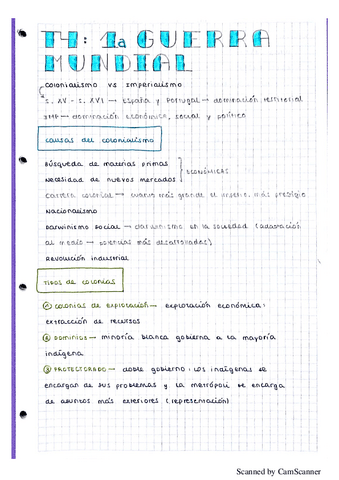 T4: 1a GUERRA
MUNDIAL
Colonialismo vs imperialismo
S. XV - S. XVI → España y Portugal → dominación territorial
IMP → dominación económica, social y política
causas del colonialismo
Búsqueda de materias primas
Necesidad de nuevos mercados } ECONÓMICAS
Carrera colonial → cuanto más grande el imperio, más prestigio
Nacionalismo
Darwinismo social → darwinismo en la sociedad (adaptación
al medio → potencias más desarrolladas)
Revolución industrial
tipos de colonias
① colonias de explotación → explotación económica:
extracción de recursos
② DOMINIOS → minoría blanca gobierna a la mayoría
indígena
③ PROTECTORADO → doble gobierno: los indígenas se
encargan de sus problemas y la metrópoli se encarga
de asuntos más exteriores (representación)
Scanned by CamScanner